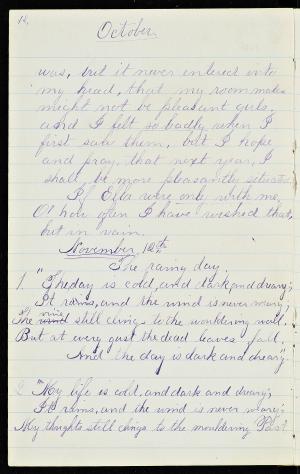 14.
October.
was, but it never entered into
my head, that my room mates
might not be pleasant girls,
and I felt so badly when I
first saw them, but I hope
and pray, that next year, I
shall be more pleasantly situated
If Ella were only with me,
O! how often I have wished that,
but in vain.
November, 12th
The rainy day.
1. "The day is cold, and dark and dreary;
It rains, and the wind is never weary;
The vine still clings to the mouldering wall.
But at every gust the dead leaves fall.
And the day is dark and dreary."
2. "My life is cold, and dark and dreary;
It rains, and the wind is never weary;
My thoughts still clings to the mouldering Past